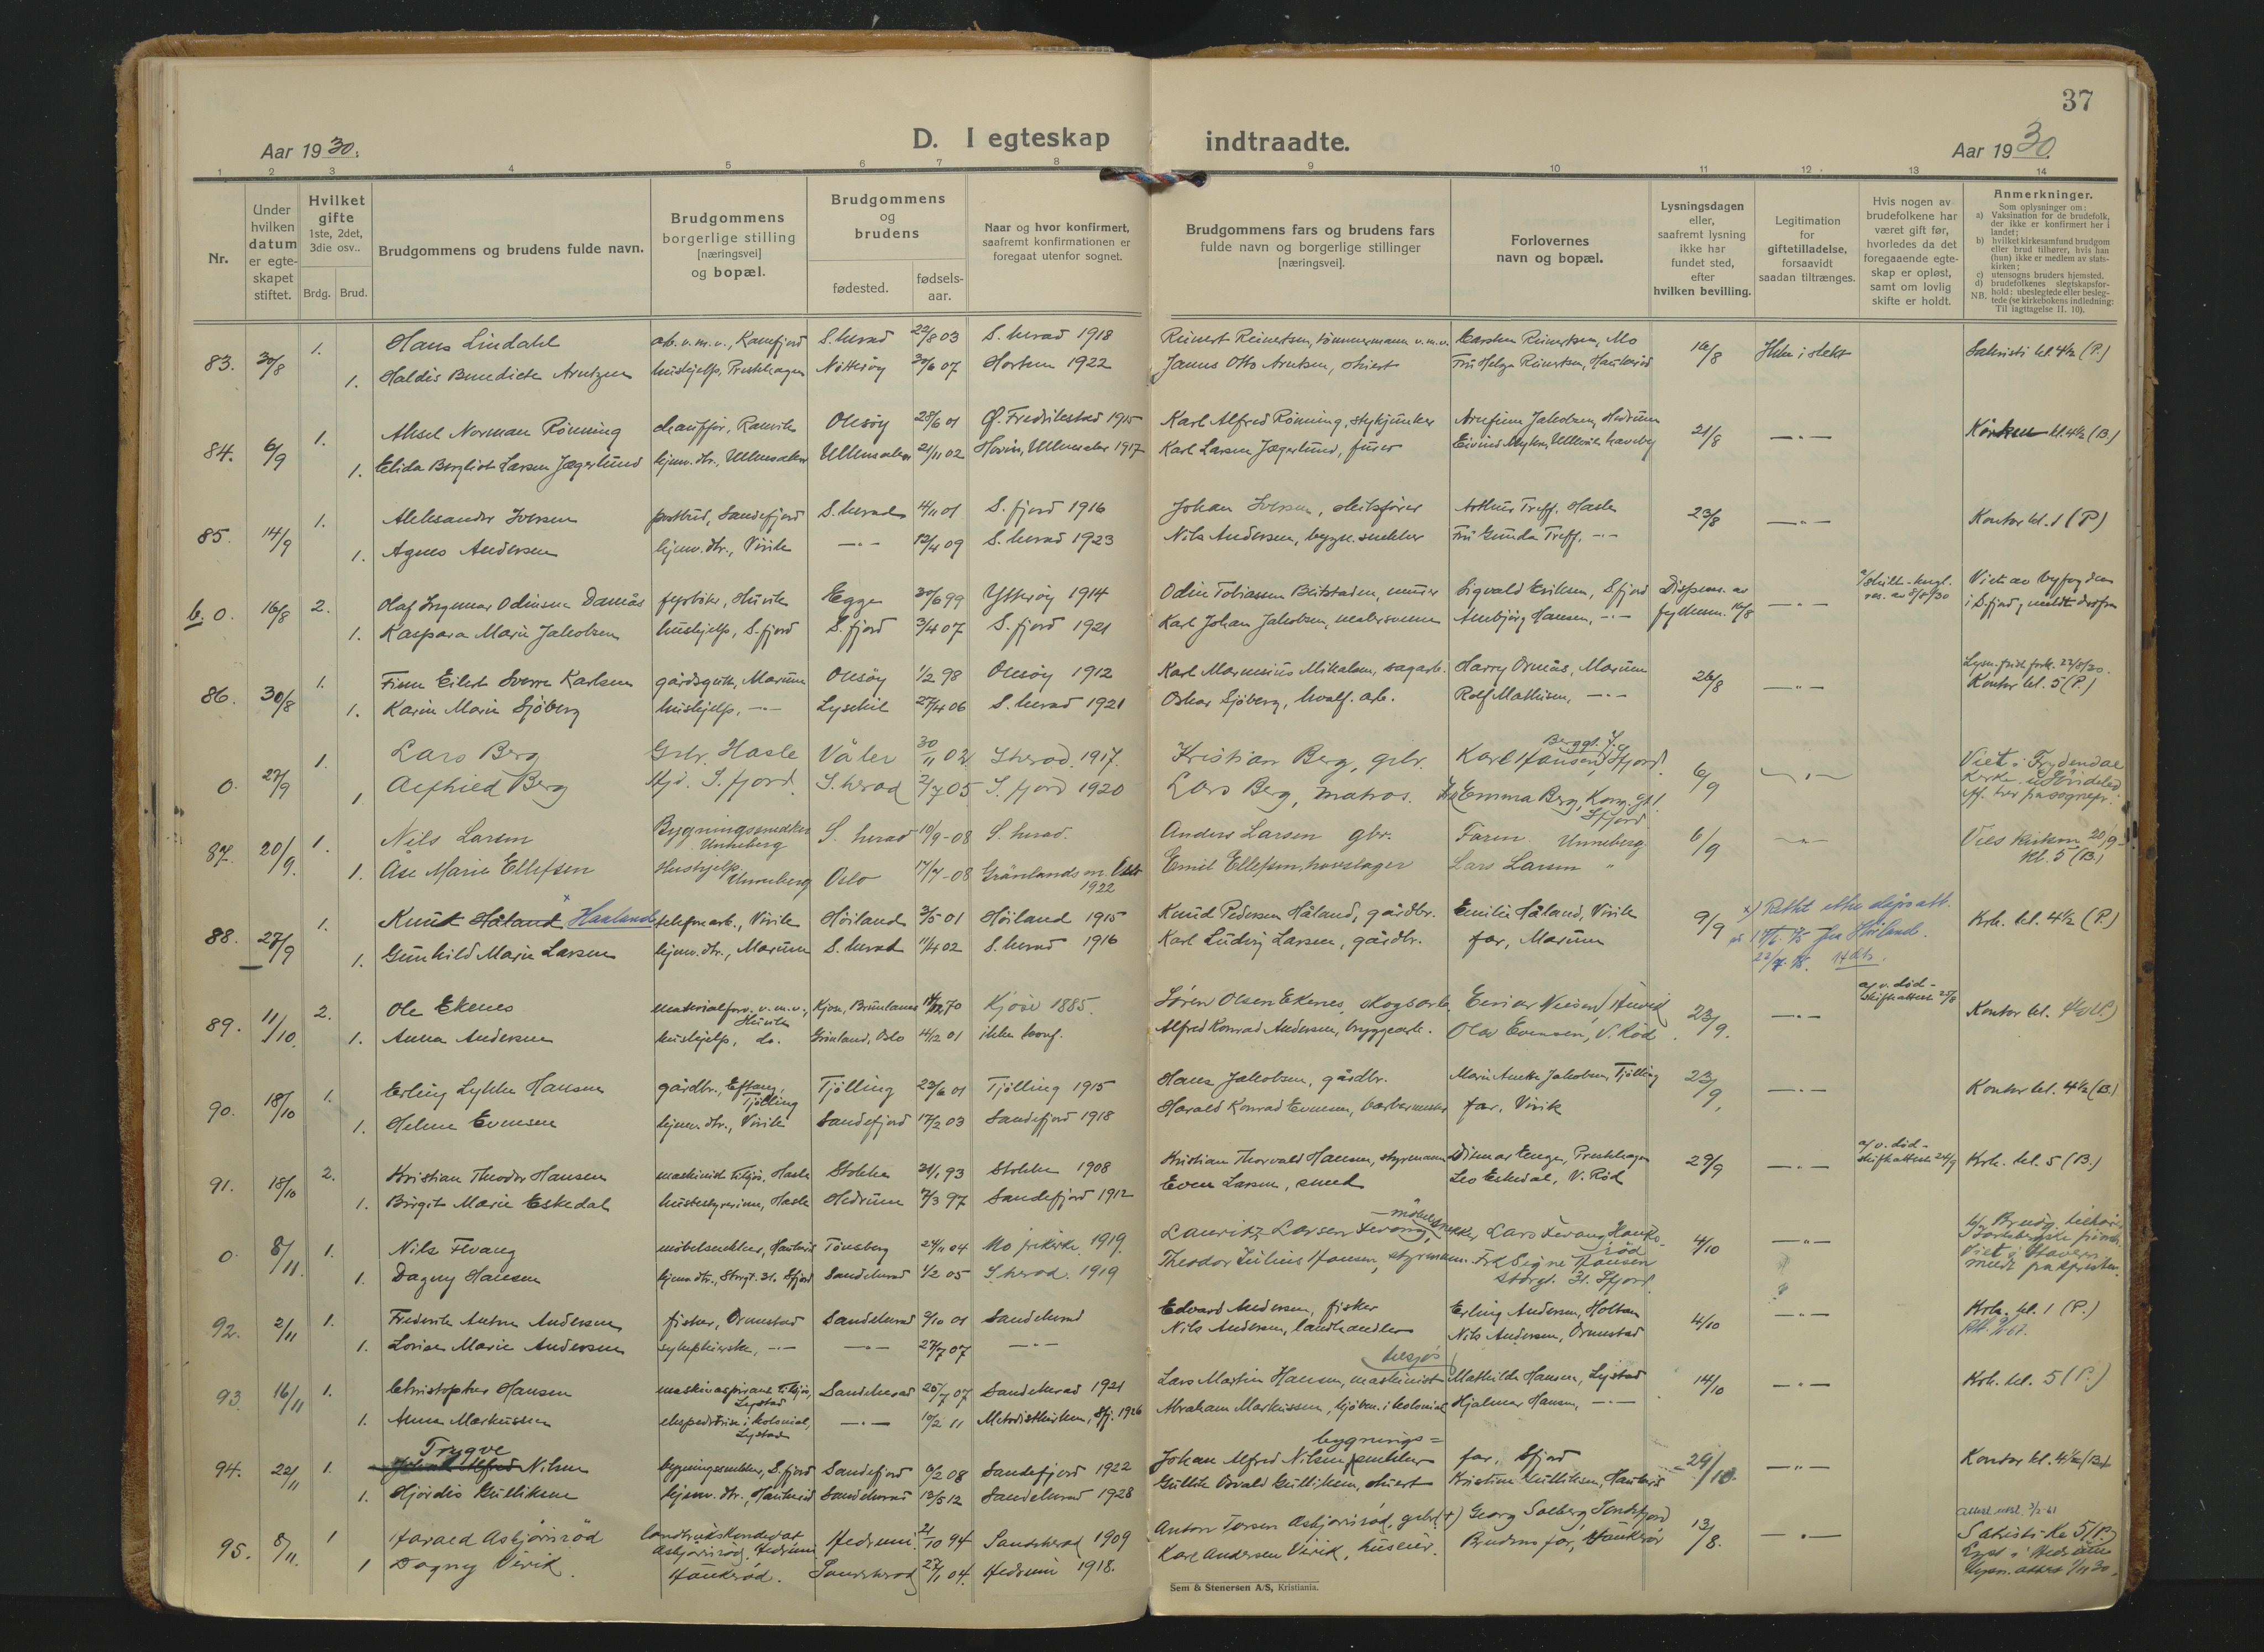 37
Aar 1930.
D. I egteskap indtraadte.
Aar 1930.
1 2 3 4 5 6 7 8 9 10 11 12 13 14
Nr.
Under hvilken datum er egteskapet stiftet.
Hvilket gifte 1ste, 2det, 3die osv..
Brdg. Brud.
Brudgommens og brudens fulde navn.
Brudgommens borgerlige stilling [næringsvei] og bopæl.
Brudgommens og brudens
fødested.
fødselsaar.
Naar og hvor konfirmert, saafremt konfirmationen er foregaat utenfor sognet.
Brudgommens fars og brudens fars fulde navn og borgerlige stillinger [næringsvei].
Forlovernes navn og bopæl.
Lysningsdagen eller, saafremt lysning ikke har fundet sted, efter hvilken bevilling.
Legitimation for giftetilladelse, forsaavidt saadan tiltrænges.
Hvis nogen av brudefolkene har været gift før, hvorledes da det foregaaende egteskap er opløst, samt om lovlig skifte er holdt.
Anmerkninger.
Som oplysninger om:
a) Vaksination for de brudefolk, der ikke er konfirmert her i landet;
b) hvilket kirkesamfund brudgom eller brud tilhører, hvis han (hun) ikke er medlem av statskirken;
c) utensogns bruders hjemsted.
d) brudefolkenes slegtskapsforhold: ubeslegtede eller beslegtede (se kirkebokens indledning: Til iagttagelse II. 10).
NB.
83. 30/8 1. Hans Lindahl S. herad 22/8 03 S. herad 1918 Reinert Reinertsen, tømmermann v.m.v. Carsten Reinertsen, Mo 16/8 Ikke i slekt Sakristi kl. 4½ (P.)
1. Haldis Benedicte Arntzen hushjelp, Presthagen Nøtterøy 30/6 07 Horten 1922 Fru Helga Reinertsen, Haukerød
84. 6/9 1. Aksel Norman Rønning chauffør, Ranvik Onsøy 28/6 01 Ø. Fredrikstad 1915 Karl Alfred Rønning, Arnfinn Jakobsen, Hedrum 21/8 —"— Kirken kl. 4½ (B.)
1. Elida Bergliot Larsen Jægerlund hjemv. dtr., Ullensaker Ullensaker 21/11 02 Hovin, Ullensaker 1917 Karl Larsen Jægerlund,
85. 14/9 1. Aleksander Iversen postbud, Sandefjord S. herad 4/11 01 S. fjord 1916 Johan Iversen, Arthur Treff, Hasle 23/8 —"— Kontor kl. 1 (P)
1. Agnes Andersen hjemv. dtr., Virik —"— 12/4 09 S. herad 1923 Nils Andersen, bygn. snekker Fru Gunda Treff, —"—
b. 0. 16/8 2. Olaf Ingemar Odinsen Damås fyrbøter, Huvik Egge 30/6 99 Ytterøy 1914 Odin Tobiassen Sigvald Eriksen, Sfjord Dispens. av fylkesm. 16/8 —"— Viet av byfogden i S.fjord, meldt derfra
1. Kaspara Marie Jakobsen hushjelp, S. fjord S. fjord 3/4 07 S. fjord 1921 Karl Johan Jakobsen, Arnbjørg Hansen, —"—
86. 30/8 1. Finn Eilert Sverre Karlsen gårdsgutt, Marum Onsøy 1/2 98 Onsøy 1912 Karl Marensius Mikalsen, sagarb. Harry Ormås, Marum 26/8 —"— Kontor kl. 5 (P.)
1. Karin Marie Sjöberg hushjelp, —"— Lysekil 27/4 06 S. herad 1921 Oskar Sjöberg, hvalf. arb. Rolf Mathisen, —"—
0. 27/9 1. Lars Berg Grbr. Hasle Våler 30/11 02 S herad. 1917. Kristian Berg, gbr. Karl Hansen, Sfjord. 6/9 —"— Viet i Frydendal Kirke
1 Alfhild Berg S. fjord. S. herad 2/7 05 S. fjord 1920 Lars Berg, matros. Emma Berg, Kong. gt. 1 Sfjord
87. 20/9. 1. Nils Larsen Bygningssnedker Unneberg S. herad 10/9-08 S. herad. Anders Larsen gbr. Faren Unneberg 6/9 —"— Vies kirken 20/9 kl. 5 (B.)
1. Åse Marie Ellefsen Hushjelp Unneberg Oslo 17/7-08 Grønlands m. Oslo 1922 Emil Ellefsen, hovslager Lars Larsen "
88. 27/9 1. Knut Håland Haaland telefonarb., Virik Høiland 3/5 01 Høiland 1915 Knud Pedersen Håland, gårdbr. Emilie Håland, Virik 9/9 x) Rettet etter dåpsatt. fra Høiland. Krk. kl. 4½ (P.)
1. Gunhild Marie Larsen hjemv. dtr., Marum S. herad 11/4 02 S. herad 1916 Karl Ludvig Larsen, gårdbr. far, Marum
89. 11/10. 2. Ole Ekenes materialforv. v.m.v., Huvik Kjose, Brunlanes 70 Kjose 1885. Søren Olsen Ekenes, skogsarb. Einar Nielsen, Huvik 23/9. —"— Kontor kl.
1. Anna Andersen hushjelp, do. Grønland, Oslo 4/12 01 ikke konf. Alfred Konrad Andersen, bryggearb. Olav Evensen, V. Rød
90. 18/10 1. Erling Lykke Hansen gårdbr., Eftang, Tjølling Tjølling 23/6 01 Tjølling 1915 Hans Jakobsen, gårdbr. Marie Anette Jakobsen, Tjølling 23/9, —"— Kontor kl. 4½ (B.)
1. Helene Evensen hjemv. dtr., Virik Sandefjord 17/2 03 Sandefjord 1918 Harald Konrad Evensen, far, Virik
91. 18/10 2. Kristian Theodor Hansen maskinist tilsjøs, Hasle Stokke 21/1 93 Stokke 1908 Kristian Thorvald Hansen, styrmann Ditmar Enger, Presthagen 29/9 —"— Krk. kl. 5 (B.)
1. Birgit Marie Eskedal husbestyrerinne, Hasle Hedrum 7/3 97 Sandefjord 1912 Even Larsen, smed Leo Eskedal, V. Rød
0 8/11. 1. Nils Fevang møbelsnekker, Haukerød Tønsberg 24/11 04 Mo frikirke. 1919. Lauritz Larsen Fevang, møbelsnekker Lars Fevang, Haukerød 4/10 —"—
1. Dagny Hansen hjemv. dtr., Storgt. 31. Sfjord Sandeherad 1/2 05 S. herad. 1919 Theodor Julius Hansen, styrmann. Frk Signe Hansen Storgt. 31. Sfjord.
92. 2/11 1. Frederik Anton Andersen fisker, Ormestad Sandeherad 2/10 01 Sandeherad Edvard Andersen, fisker Erling Andersen, Holtan 4/10 —"— Krk. kl. 1 (P.)
1. Marie Andersen —"— —"— 27/7 07 —"— Nils Andersen, landhandler Nils Andersen, Ormestad
93. 16/11 1. Christopher Hansen maskinaspirant tilsjøs, Lystad Sandeherad 20/7 07 Sandeherad 1921 Lars Martin Hansen, maskinist tilsjøs Mathilde Hansen, Lystad 14/10 —"— Krk. kl. 5 (P.)
1. Anna Markussen ekspeditrise i kolonial, Lystad —"— 10/2 11 Metodistkirken, Sfj. 1926 Abraham Markussen, kjøbm. i kolonial Hjalmar Hansen, —"—
94. 22/11 1. Trygve Johan Alfred Nilsen bygningssnekker, S. fjord Sandefjord 6/2 08 Sandefjord 1922 Johan Alfred Nilsen, bygnings= snekker far, Sfjord 29/10. —"— Kontor kl. 4½ (B.)
1. Hjørdis Gulliksen hjemv. dtr., Haukerød Sandeherad 13/5 12 Sandeherad 1928 Gullik Osvald Gulliksen, stuert Kristine Gulliksen, Haukerød
95. 8/11. 1 Harald Asbjørnrød landbrukskandidat Asbjørnrød, Hedrum Hedrum 21/10 94 Sandeherad 1909 Anton Torsen Asbjørnrød, gbr. (+) Georg Solberg Sandefjord 13/8. —"— Sakristi Kl 5 (P.)
1 Dagny Virik. Haukerød. Sandeherad 27/1 04. Hedrum 1918. Karl Andersen Virik, huseier. Brudens far, Haukerød
Sem & Stenersen A/S, Kristiania.